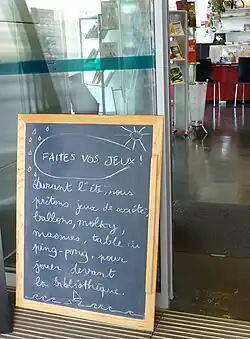 FAITES VOS JEUX !
Durant l'été, nous
prêtons jeux de société,
ballons, molkky,
massues, table de
ping-pong, pour
jouer devant
la bibliothèque.